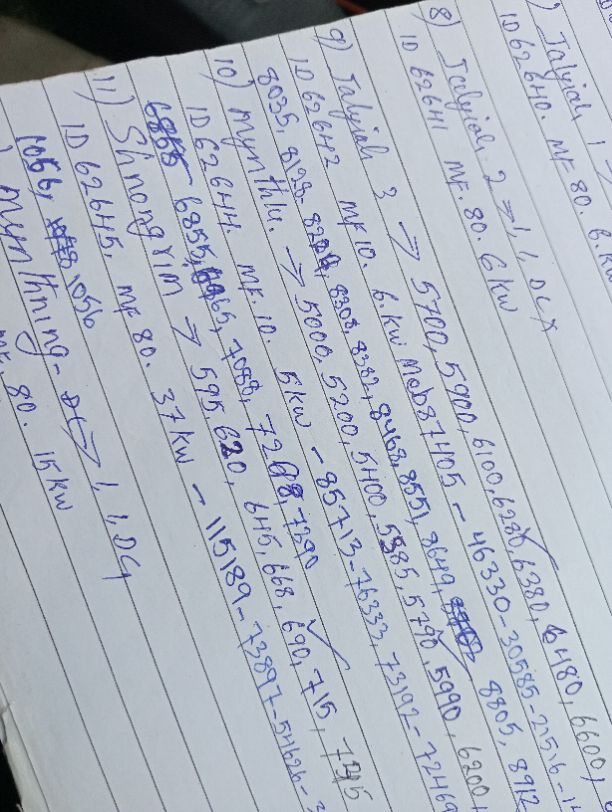 7) Talyiah 1 →
ID 62640. MF 80. 6.KW
8) Talyiah 2 → 1, 1, DC x
ID 62641 MF. 80. 6 KW
9) Talyiah 3 → 5700, 5900, 6100, 6280, 6380, 6480, 6600,
ID 62642 MF 10. 6.KW Mob 87405 - 46330 - 30585 - 21516 - 14
8035, 8198, 8204, 8308, 8382, 8468, 8551, 8649, 8805, 8912
10) Mynthlu. → 5000, 5200, 5400, 5585, 5790, 5990, 6200,
ID 62644. MF 10. 5KW - 85713 - 76333, 73192 - 72468
6855, 6965, 7088, 7208, 7390
11) Shnongrim → 595, 620, 645, 668, 690, 715, 745
ID 62645, MF 80. 37KW - 115189 - 73897 - 54626 -
1056, 1056
Mynthning - DC → 1, 1, DC,
MF. 80. 15 KW